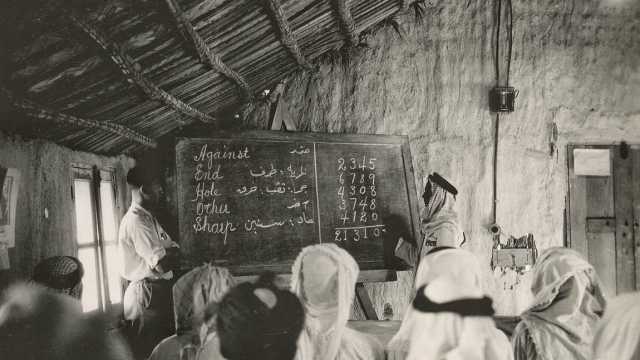 Against
End طرف
Hole ثقب
Other
Sharp حاد
2345
6789
4308
3748
4120
21310